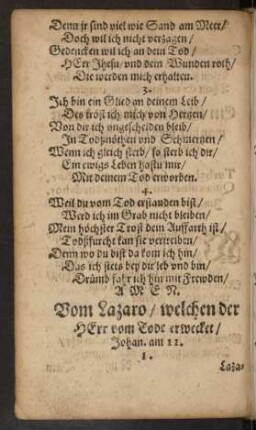 Denn jr sind viel wie Sand am Meer/
Doch wil ich nicht verzagen/
Gedencken wil ich an dein Tod/
HErr Jhesu/ vnd dein Wunden roth/
Die werden mich erhalten.
3.
Ich bin ein Glied an deinem Leib/
Des tröst ich mich von Hertzen/
Von dir ich vngescheiden bleib/
In Todßnöthen vnd Schmertzen/
Wenn ich gleich sterb/ so sterb ich dir/
Ein ewigs Leben hastu mir/
Mit deinem Tod erworben.
4.
Weil du vom Tod erstanden bist/
Werd ich im Grab nicht bleiben/
Mein höchster Trost dein Auffarth ist/
Todßfurcht kan sie vertreiben/
Denn wo du bist da kom ich hin/
Das ich stets bey dir leb vnd bin/
Drümb fahr ich hin mit Frewden/
A M E N.
Vom Lazaro/ welchen der
HErr vom Tode erwecket/
Johan. am 11.
1.
Laza-